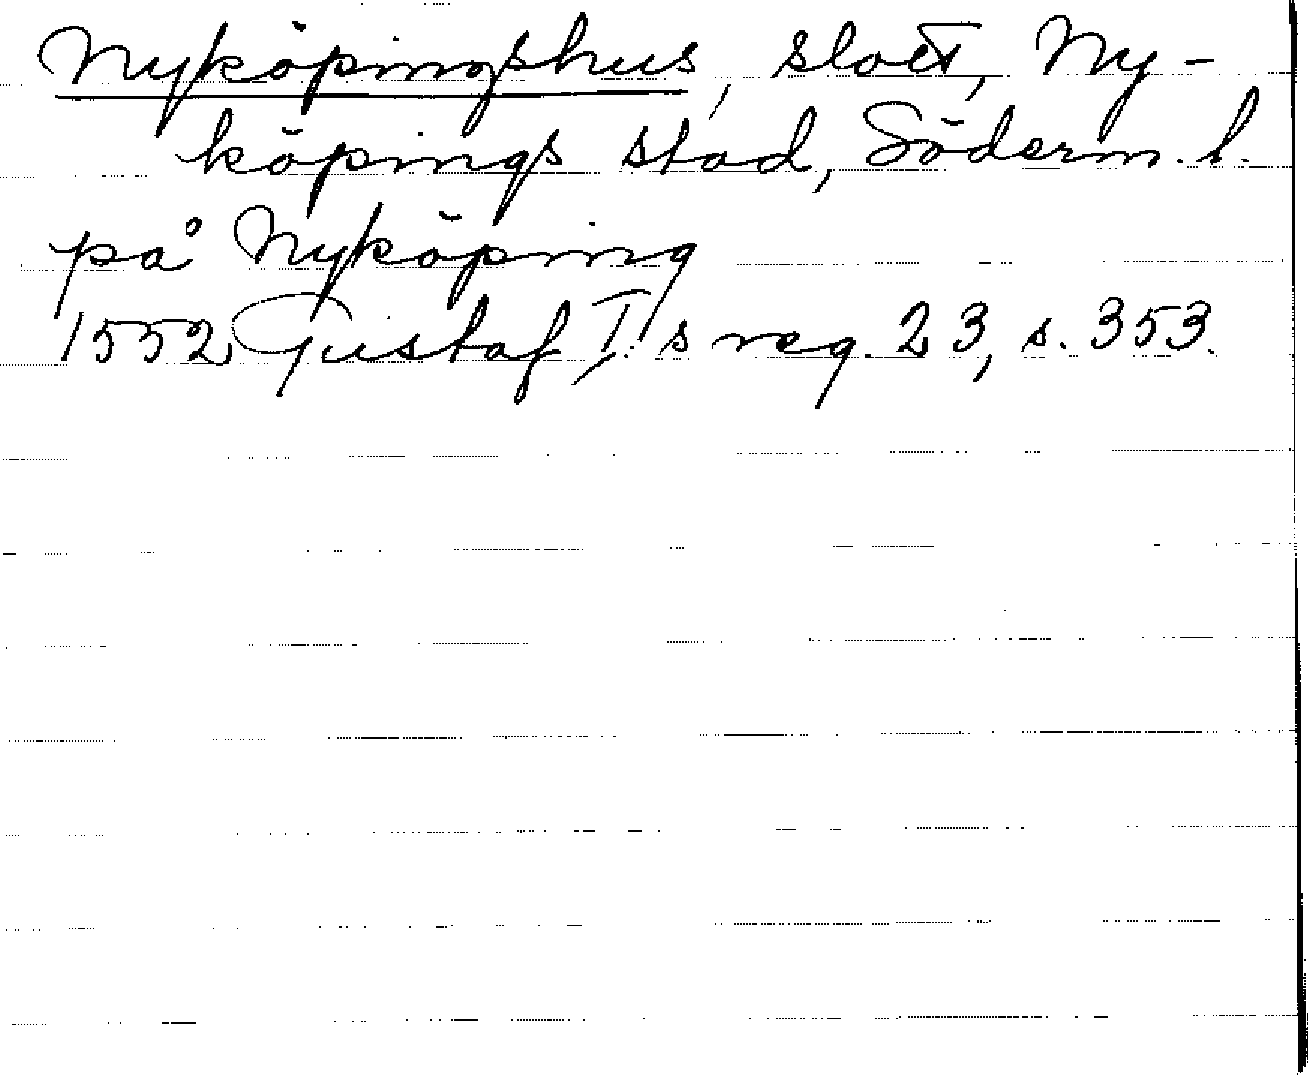 Nyköpingshus, slott, Ny-
köpings stad, Söderm. l.
på Nyköping
1552 Gustaf I:s reg. 23, s. 353.